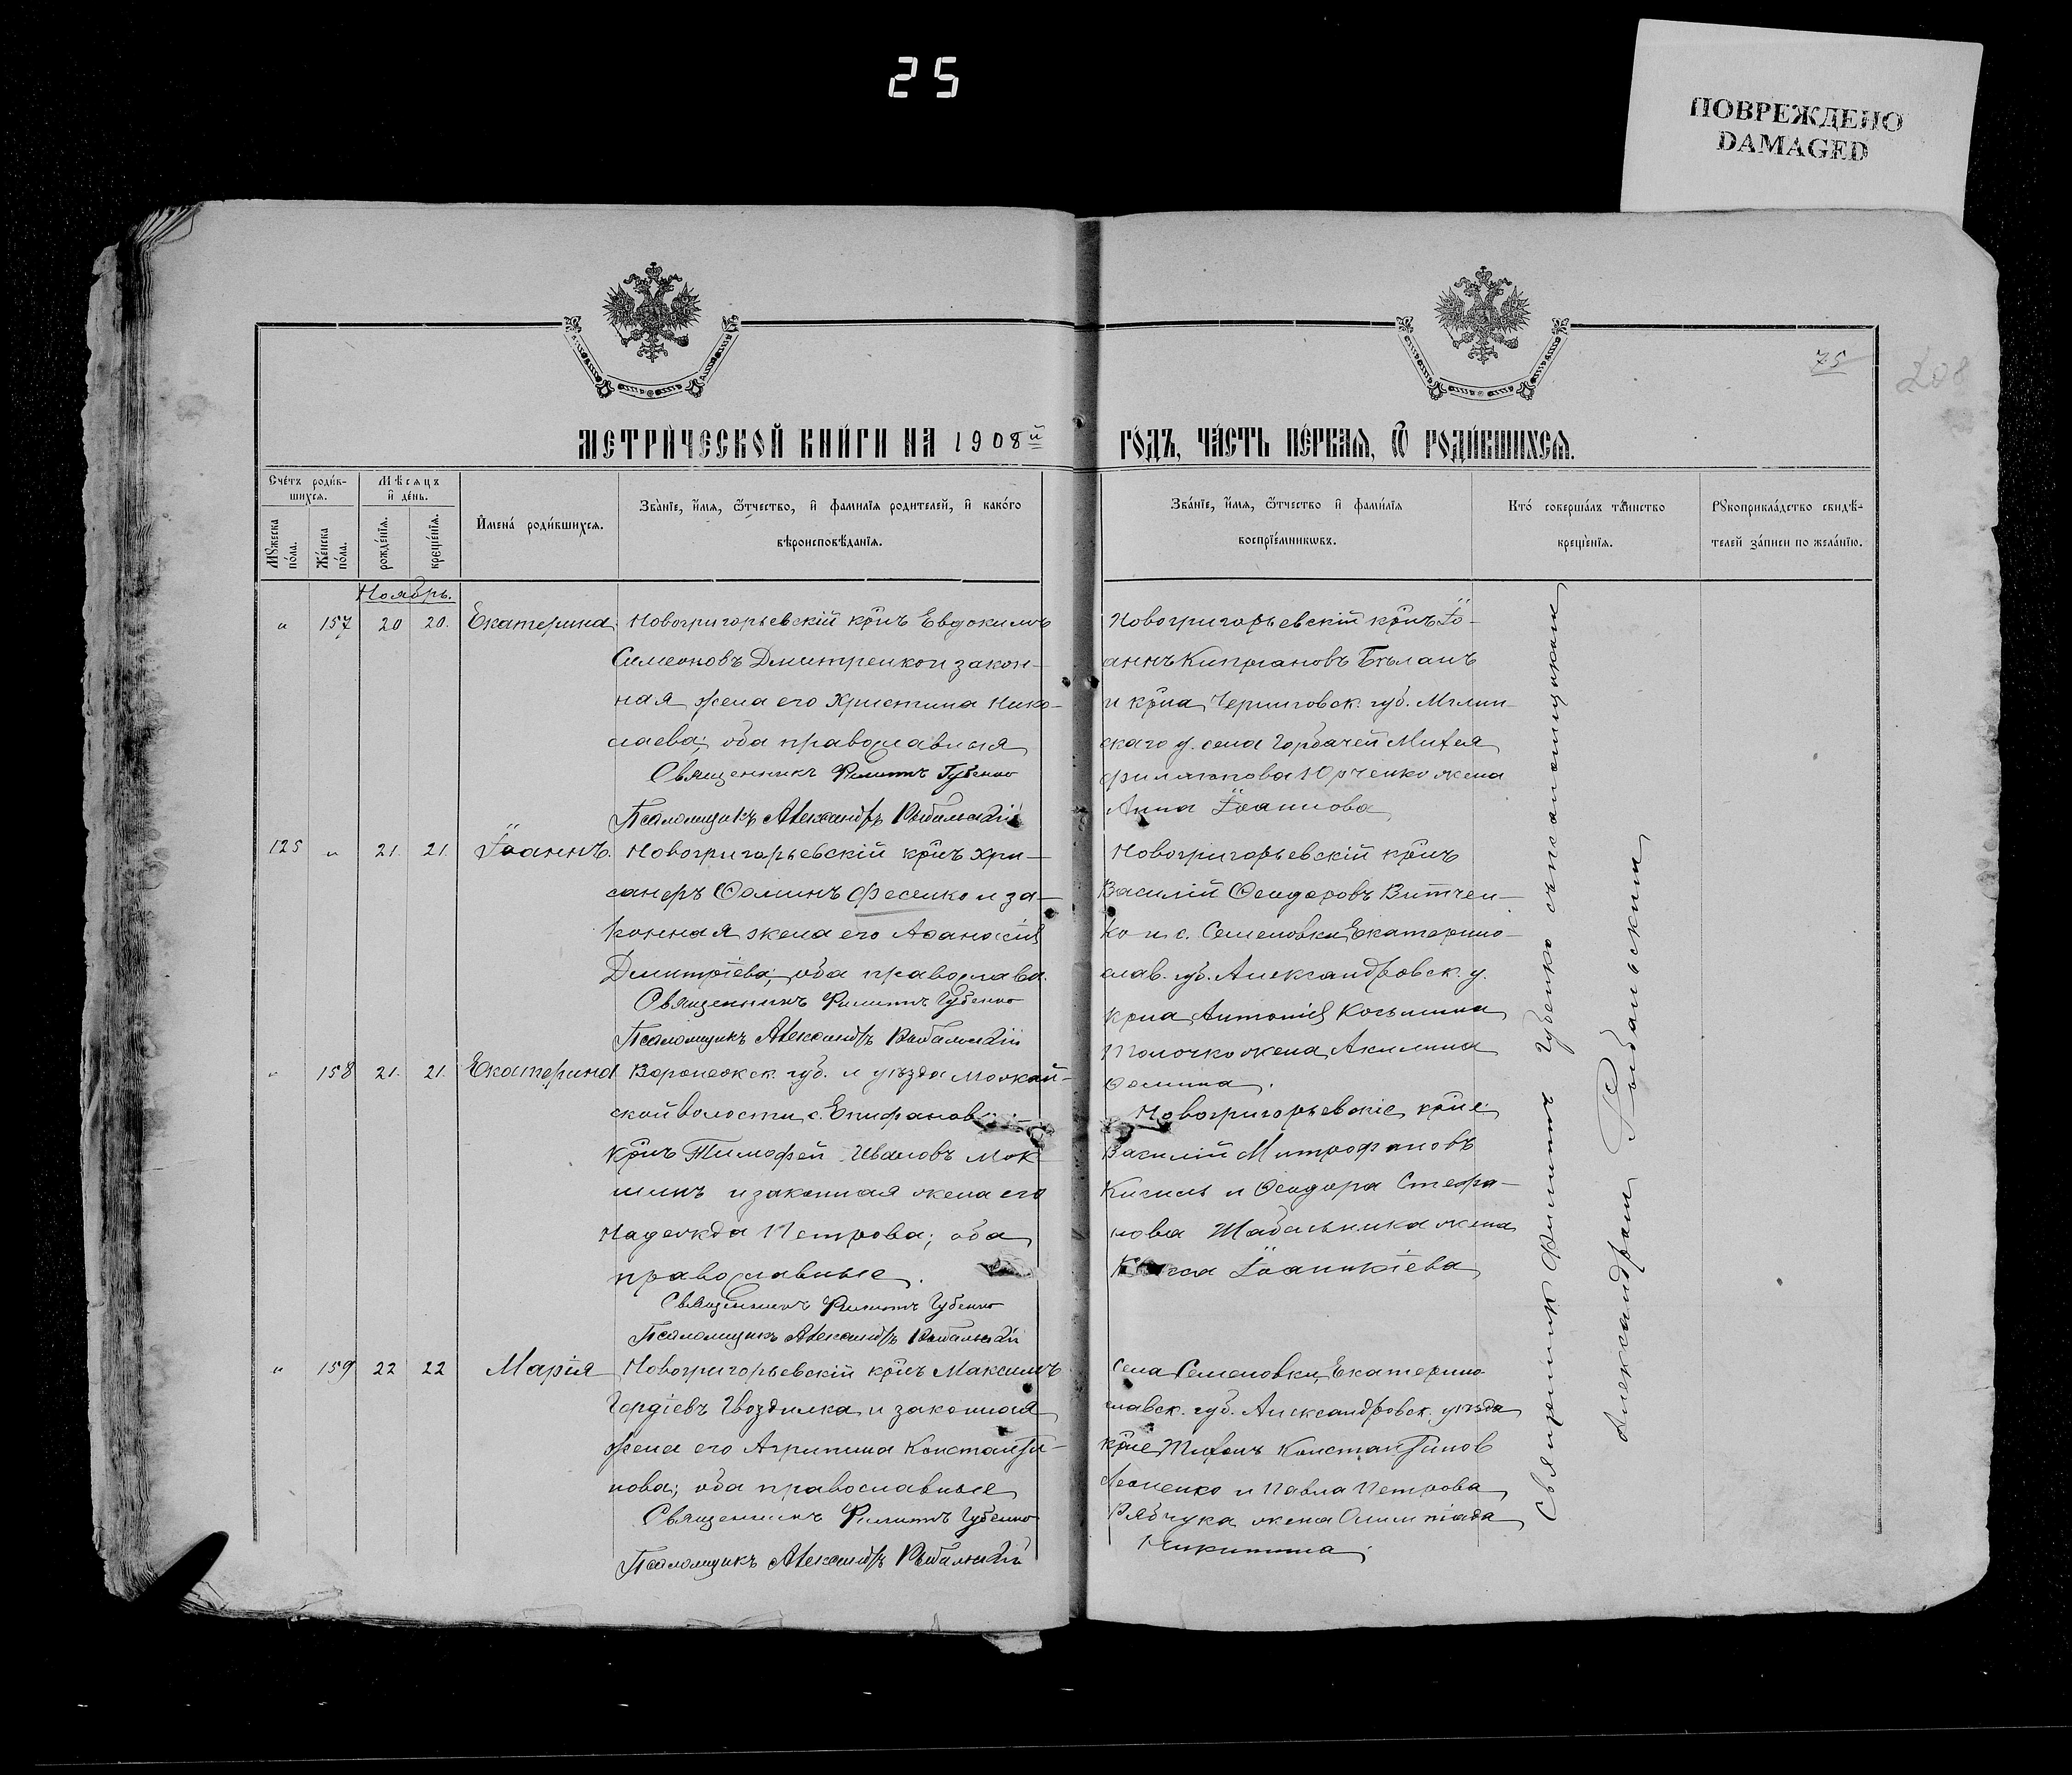 25
ПОВРЕЖДЕНО
DAMAGED
75
208
МЕТРИ́ЧЕСКОЙ КНИ́ГИ НА 1908й
ГО́ДЪ, ЧА́СТЬ ПЕ́РВАѦ, Ѿ РОДИ́ВШИХСѦ.
Сче́тъ роди́в-
шихсѧ.
Мѣсѧцъ
и҆ де́нь.
Мꙋжеска
по́ла.
Же́нска
по́ла.
рожде́нїѧ.
креще́нїѧ.
И҆мена̀ роди́вшихсѧ.
Зва́нїе, и҆́мѧ, ѻ҆́тчество, и҆ фами́лїѧ родителей, и҆ како́го
вѣроисповѣ́данїѧ.
Зва́нїе, и҆́мѧ, ѻ҆́тчество и҆ фами́лїѧ
воспрїе́мникѡвъ.
Кто̀ соверша́лъ та́инство
креще́нїѧ.
Рꙋкоприкла́дство свидѣ́-
телей за́писи по жела́нїю.
Ноябрь.
" 157 20 20. Екатерина
Новогригорьевскій крнъ Евдокимъ
Симеоновъ Дмитренко и закон-
ная жена его Христина Нико-
лаева; оба православныя
Священникъ Филиппъ Губенко
Псаломщикъ Александръ Рыбальскій
Новогригорьевскій крнъ Іо-
аннъ Кипріановъ Бѣланъ
и крна Черниговск. губ. Мглин-
скаго у. села Горбачей Михея
Филиппова Юрченко жена
Анна Іоаннова
125 " 21. 21. Іоаннъ.
Новогригорьевскій крнъ Хри-
санфъ Ѳоминъ Фесенко и за-
конная жена его Аѳанасія
Димитріева; оба православ.
Священникъ Филиппъ Губенко
Псаломщикъ Александръ Рыбальскій
Новогригорьевскій крнъ
Василій Ѳеодоровъ Витчен-
ко и с. Семеновки Екатерино-
слав. губ. Александровск. у.
крна Антонія Косьмина
Толочко жена Акилина
Ѳомина.
" 158 21. 21. Екатерина
Воронежск. губ. и уѣзда
ской волости с. Епифанов
крнъ Тимофей Ивановъ Мок
шинъ и законная жена его
Надежда Петрова; оба
православные.
Священникъ Филиппъ Губенко
Псаломщикъ Александръ Рыбальскій
Новогригорьевскіе крне:
Василій Митрофановъ
Кигиль и Ѳеодора Стефа-
нова Шабельника жена
Іоанникіева
" 159 22 22 Марія
Новогригорьевскій крнъ Максимъ
Гордіевъ Гвоздилка и законная
жена его Агрипина Константи-
нова; оба православные
Священникъ Филиппъ Губенко
Псаломщикъ Александръ Рыбальскій
Села Семеновки Екатерино
славск. губ. Александровск. уѣзда
крне Тихонъ Константинов
Леоненко и Павла Петрова
Рябчука жена Олимпіада
Никитина.
Священник Филиппъ Губенко съ псаломщикомъ
Александромъ Рыбальскимъ